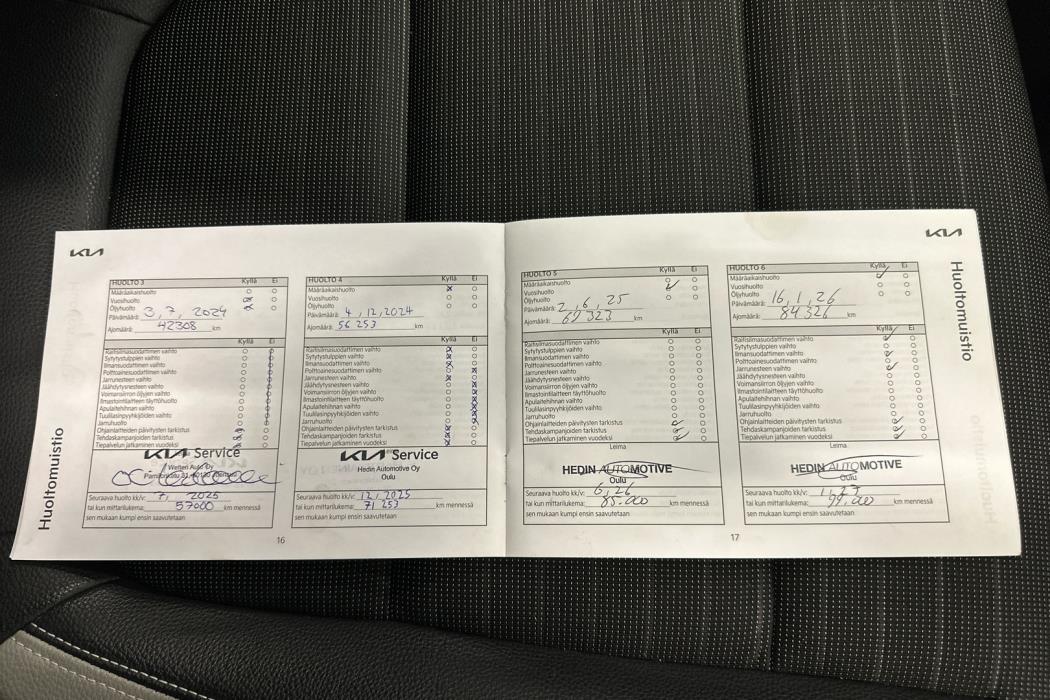 KIA
Huoltomuistio
HUOLTO 3 Kyllä Ei
Määräaikaishuolto
Vuosihuolto
Öljyhuolto
Päivämäärä: 3, 7, 2024
Ajomäärä: 42308 km
Kyllä Ei
Raitisilmasuodattimen vaihto
Sytytystulppien vaihto
Ilmansuodattimen vaihto
Polttoainesuodattimen vaihto
Jarrunesteen vaihto
Jäähdytysnesteen vaihto
Voimansiirron öljyjen vaihto
Ilmastointilaitteen täyttöhuolto
Apulaitehihnan vaihto
Tuulilasinpyyhkijöiden vaihto
Jarruhuolto
Ohjainlaitteiden päivitysten tarkistus
Tehdaskampanjoiden tarkistus
Tiepalvelun jatkaminen vuodeksi
KIA Service
Wetteri Auto Oy
Seuraava huolto kk/v: 7, 2025
tai kun mittarilukema: 57000 km mennessä
sen mukaan kumpi ensin saavutetaan
HUOLTO 4 Kyllä Ei
Määräaikaishuolto
Vuosihuolto
Öljyhuolto
Päivämäärä: 4, 12, 2024
Ajomäärä: 56 253 km
Kyllä Ei
Raitisilmasuodattimen vaihto
Sytytystulppien vaihto
Ilmansuodattimen vaihto
Polttoainesuodattimen vaihto
Jarrunesteen vaihto
Jäähdytysnesteen vaihto
Voimansiirron öljyjen vaihto
Ilmastointilaitteen täyttöhuolto
Apulaitehihnan vaihto
Tuulilasinpyyhkijöiden vaihto
Jarruhuolto
Ohjainlaitteiden päivitysten tarkistus
Tehdaskampanjoiden tarkistus
Tiepalvelun jatkaminen vuodeksi
KIA Service
Hedin Automotive Oy
Oulu
Seuraava huolto kk/v: 12, 2025
tai kun mittarilukema: 71 253 km mennessä
sen mukaan kumpi ensin saavutetaan
16
HUOLTO 5 Kyllä Ei
Määräaikaishuolto
Vuosihuolto
Öljyhuolto
Päivämäärä: 2, 6, 25
Ajomäärä: 69 323 km
Kyllä Ei
Raitisilmasuodattimen vaihto
Sytytystulppien vaihto
Ilmansuodattimen vaihto
Polttoainesuodattimen vaihto
Jarrunesteen vaihto
Jäähdytysnesteen vaihto
Voimansiirron öljyjen vaihto
Ilmastointilaitteen täyttöhuolto
Apulaitehihnan vaihto
Tuulilasinpyyhkijöiden vaihto
Jarruhuolto
Ohjainlaitteiden päivitysten tarkistus
Tehdaskampanjoiden tarkistus
Tiepalvelun jatkaminen vuodeksi
Leima
HEDIN AUTOMOTIVE
Oulu
Seuraava huolto kk/v: 6, 26
tai kun mittarilukema: 85.000 km mennessä
sen mukaan kumpi ensin saavutetaan
KIA
Huoltomuistio
HUOLTO 6 Kyllä Ei
Määräaikaishuolto
Vuosihuolto
Öljyhuolto
Päivämäärä: 16, 1, 26
Ajomäärä: 84 326 km
Kyllä Ei
Raitisilmasuodattimen vaihto
Sytytystulppien vaihto
Ilmansuodattimen vaihto
Polttoainesuodattimen vaihto
Jarrunesteen vaihto
Jäähdytysnesteen vaihto
Voimansiirron öljyjen vaihto
Ilmastointilaitteen täyttöhuolto
Apulaitehihnan vaihto
Tuulilasinpyyhkijöiden vaihto
Jarruhuolto
Ohjainlaitteiden päivitysten tarkistus
Tehdaskampanjoiden tarkistus
Tiepalvelun jatkaminen vuodeksi
Leima
HEDIN AUTOMOTIVE
Oulu
Seuraava huolto kk/v:
tai kun mittarilukema: 99.000 km mennessä
sen mukaan kumpi ensin saavutetaan
17